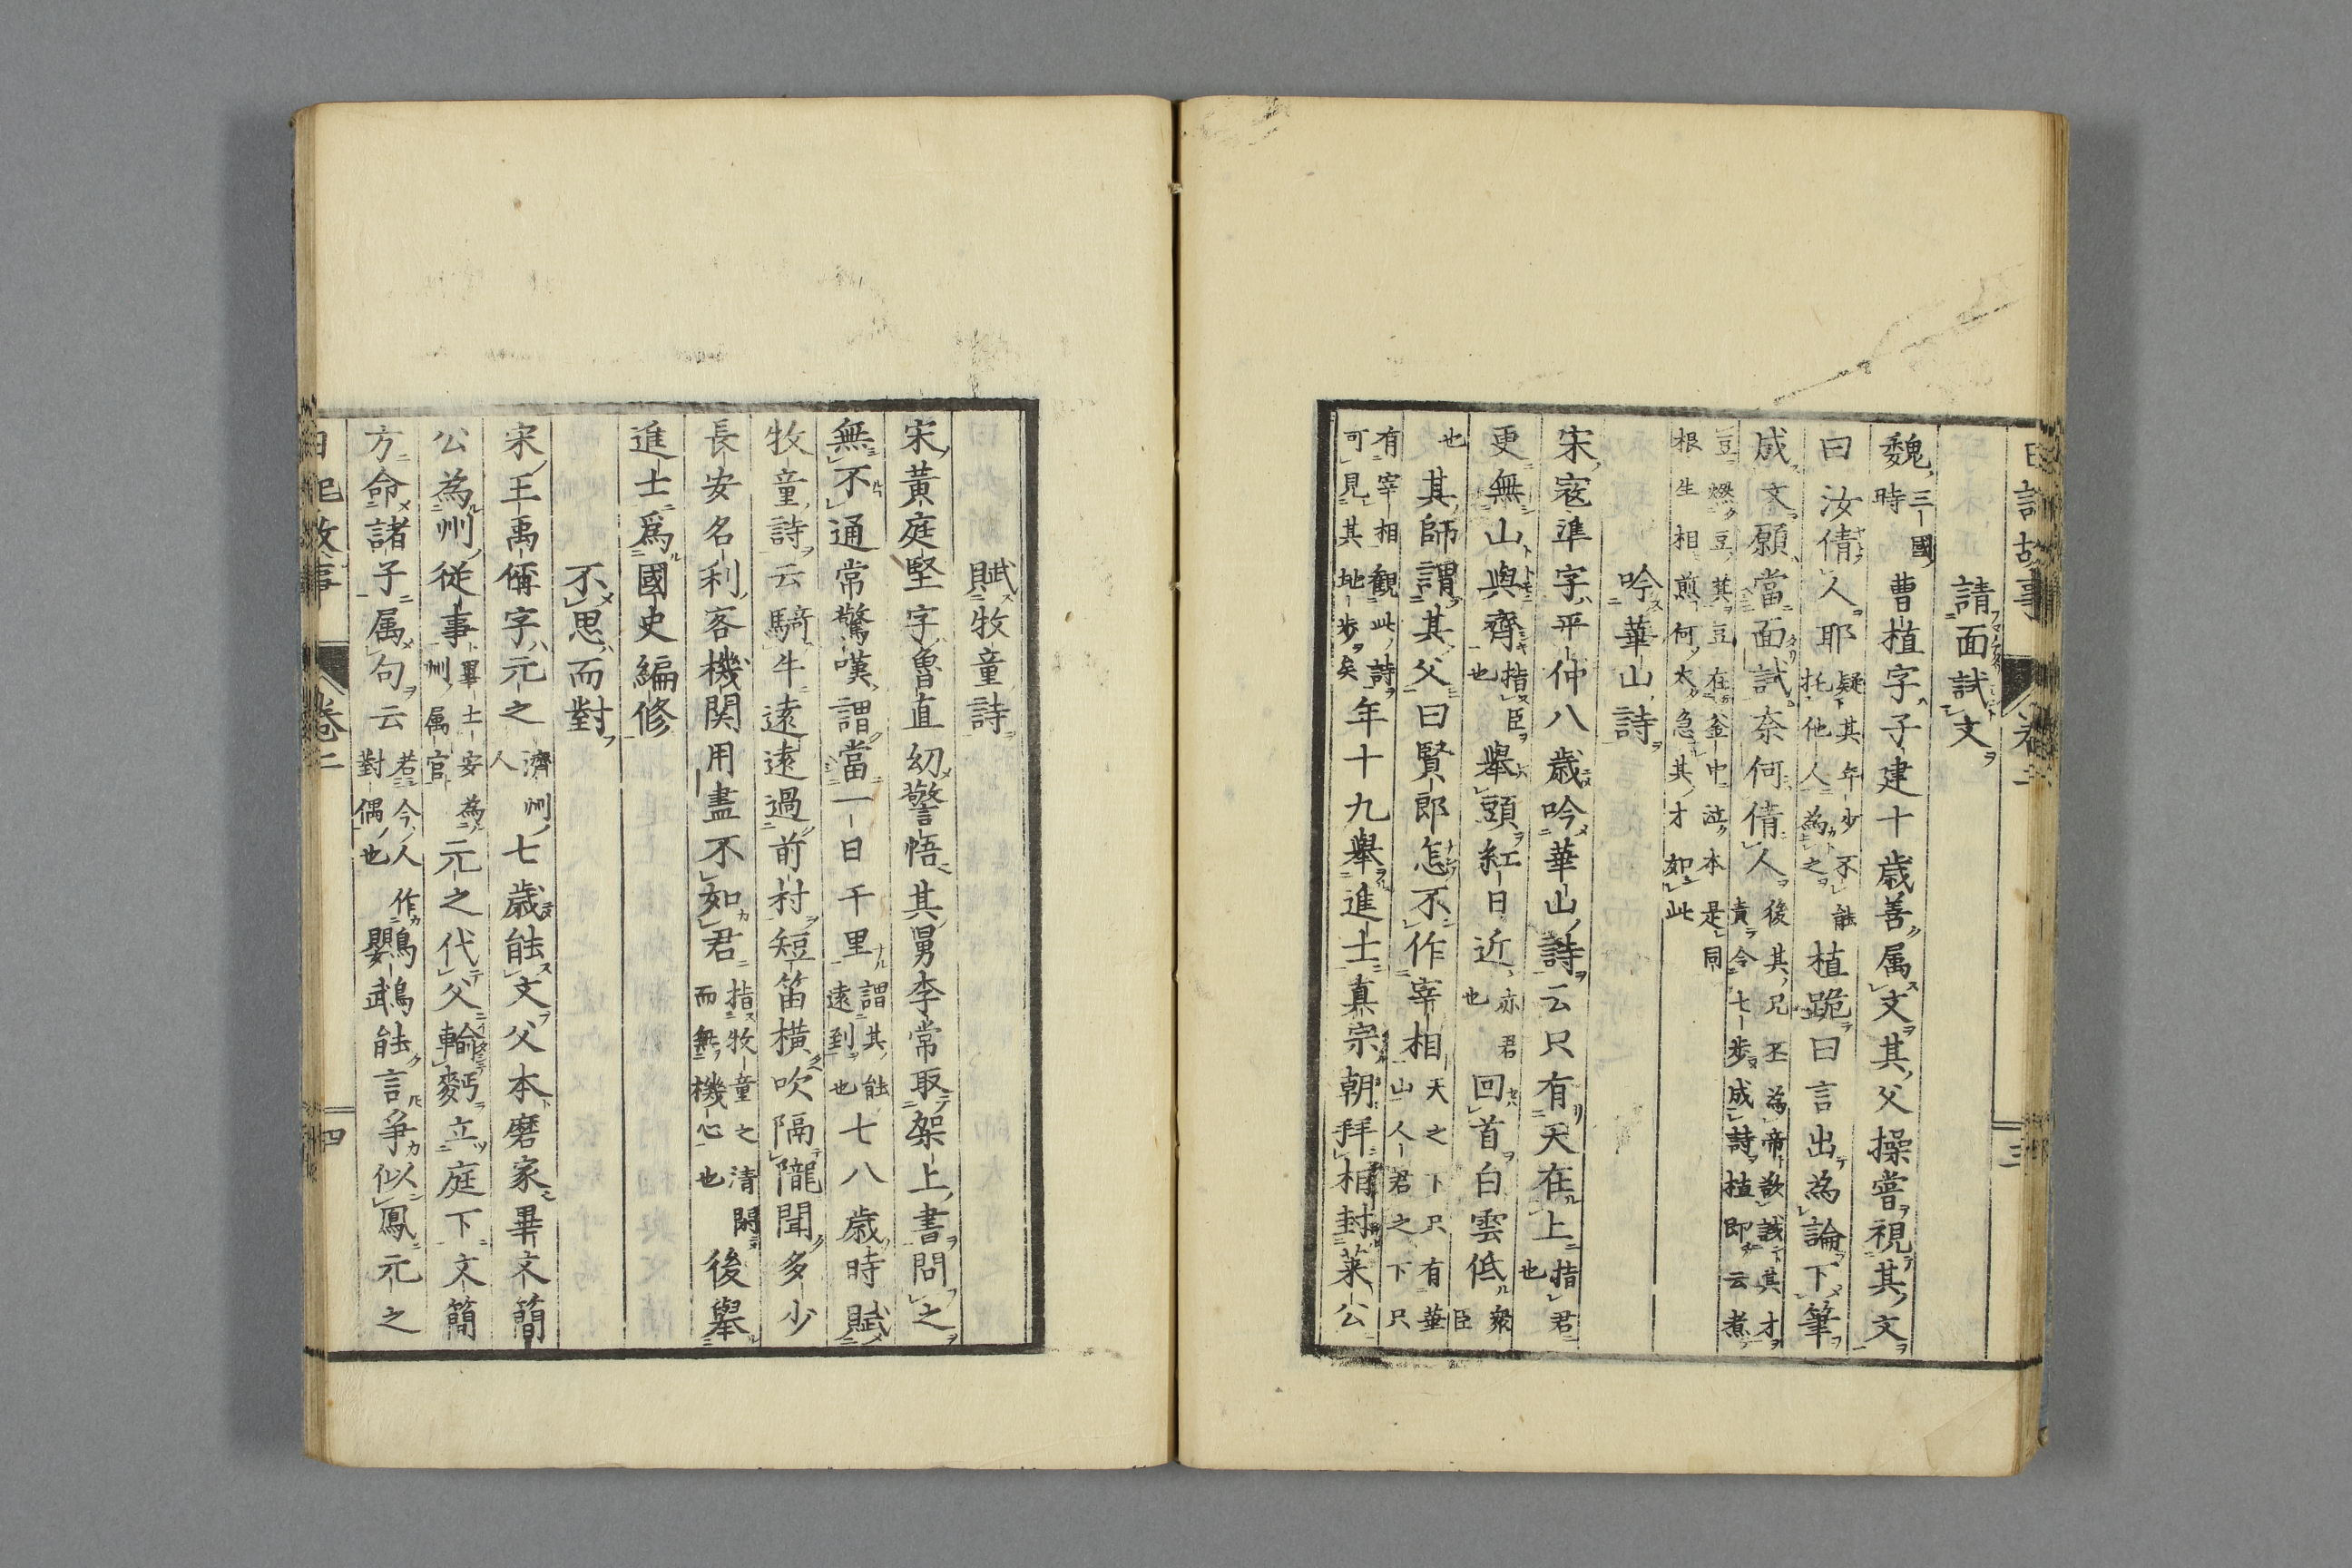 日記故事 卷二 三
請面試文
魏三國時曹植字子建十歳善属文其父操嘗視其文
曰汝倩人耶疑其年少不能托他人為之植跪曰言出為論下筆
成文願當面試奈何倩人後其兄丕為帝欲試其才責令七步成詩植即云煮
豆燃豆萁豆在釜中泣本是同根生相煎何太急其才如此
吟華山詩
宋寇準字平仲八歳吟華山詩云只有天在上指君也
更無山與齊指臣也舉頭紅日近亦君也回首白雲低衆臣
也其師謂其父曰賢郎怎不作宰相天之下只有華山人君之下只
有宰相觀此詩可見其地步矣年十九舉進士真宗朝拜相封莱公
賦牧童詩
宋黃庭堅字魯直幼警悟其舅李常取架上書問之
無不通常驚嘆謂當一日千里謂其能遠到也七八歳時賦
牧童詩云騎牛遠遠過前村短笛橫吹隔隴聞多少
長安名利客機関用盡不如君指牧童之清閑而無機心也後舉
進士爲國史編修
不思而對
宋王禹偁字元之濟州人七歳能文父本磨家畢文簡
公為州從事畢士安為州属官元之代父輸麪立庭下文簡
方命諸子属句云若今人作對偶也鸚鵡能言爭似鳳元之
日記故事 卷二 四